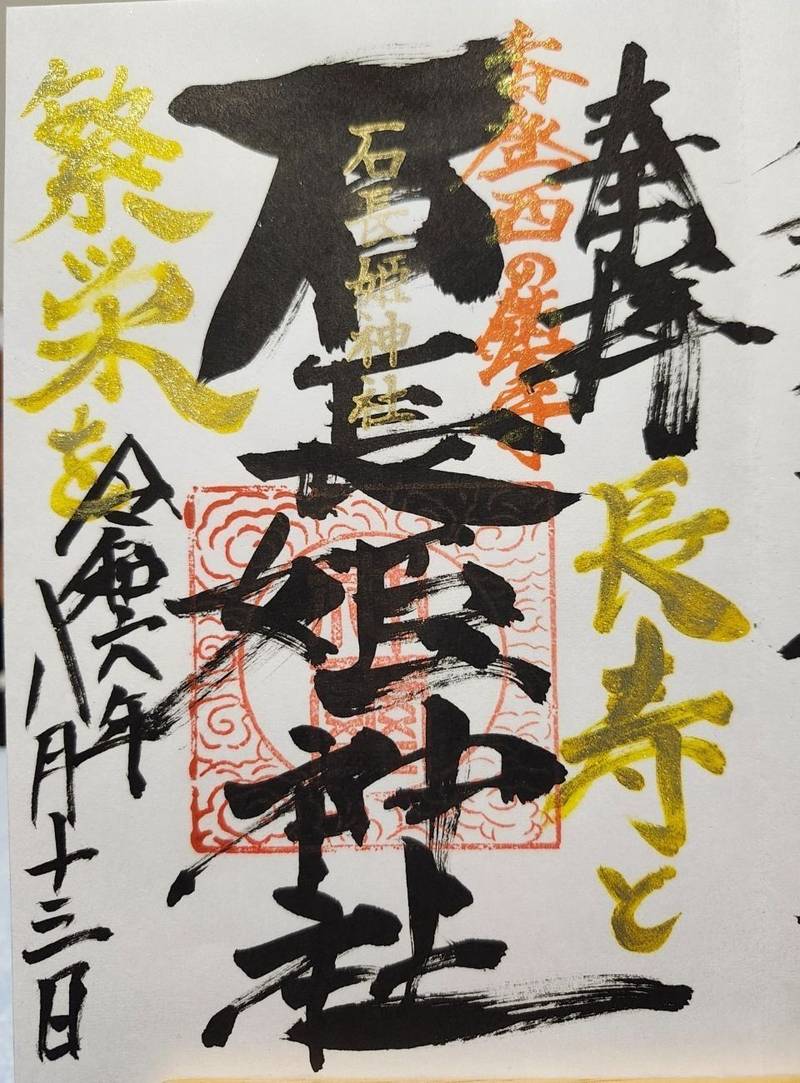 奉拝
長寿と
石長姫神社
石長姫神社
繁栄を
令和六年
八月十三日